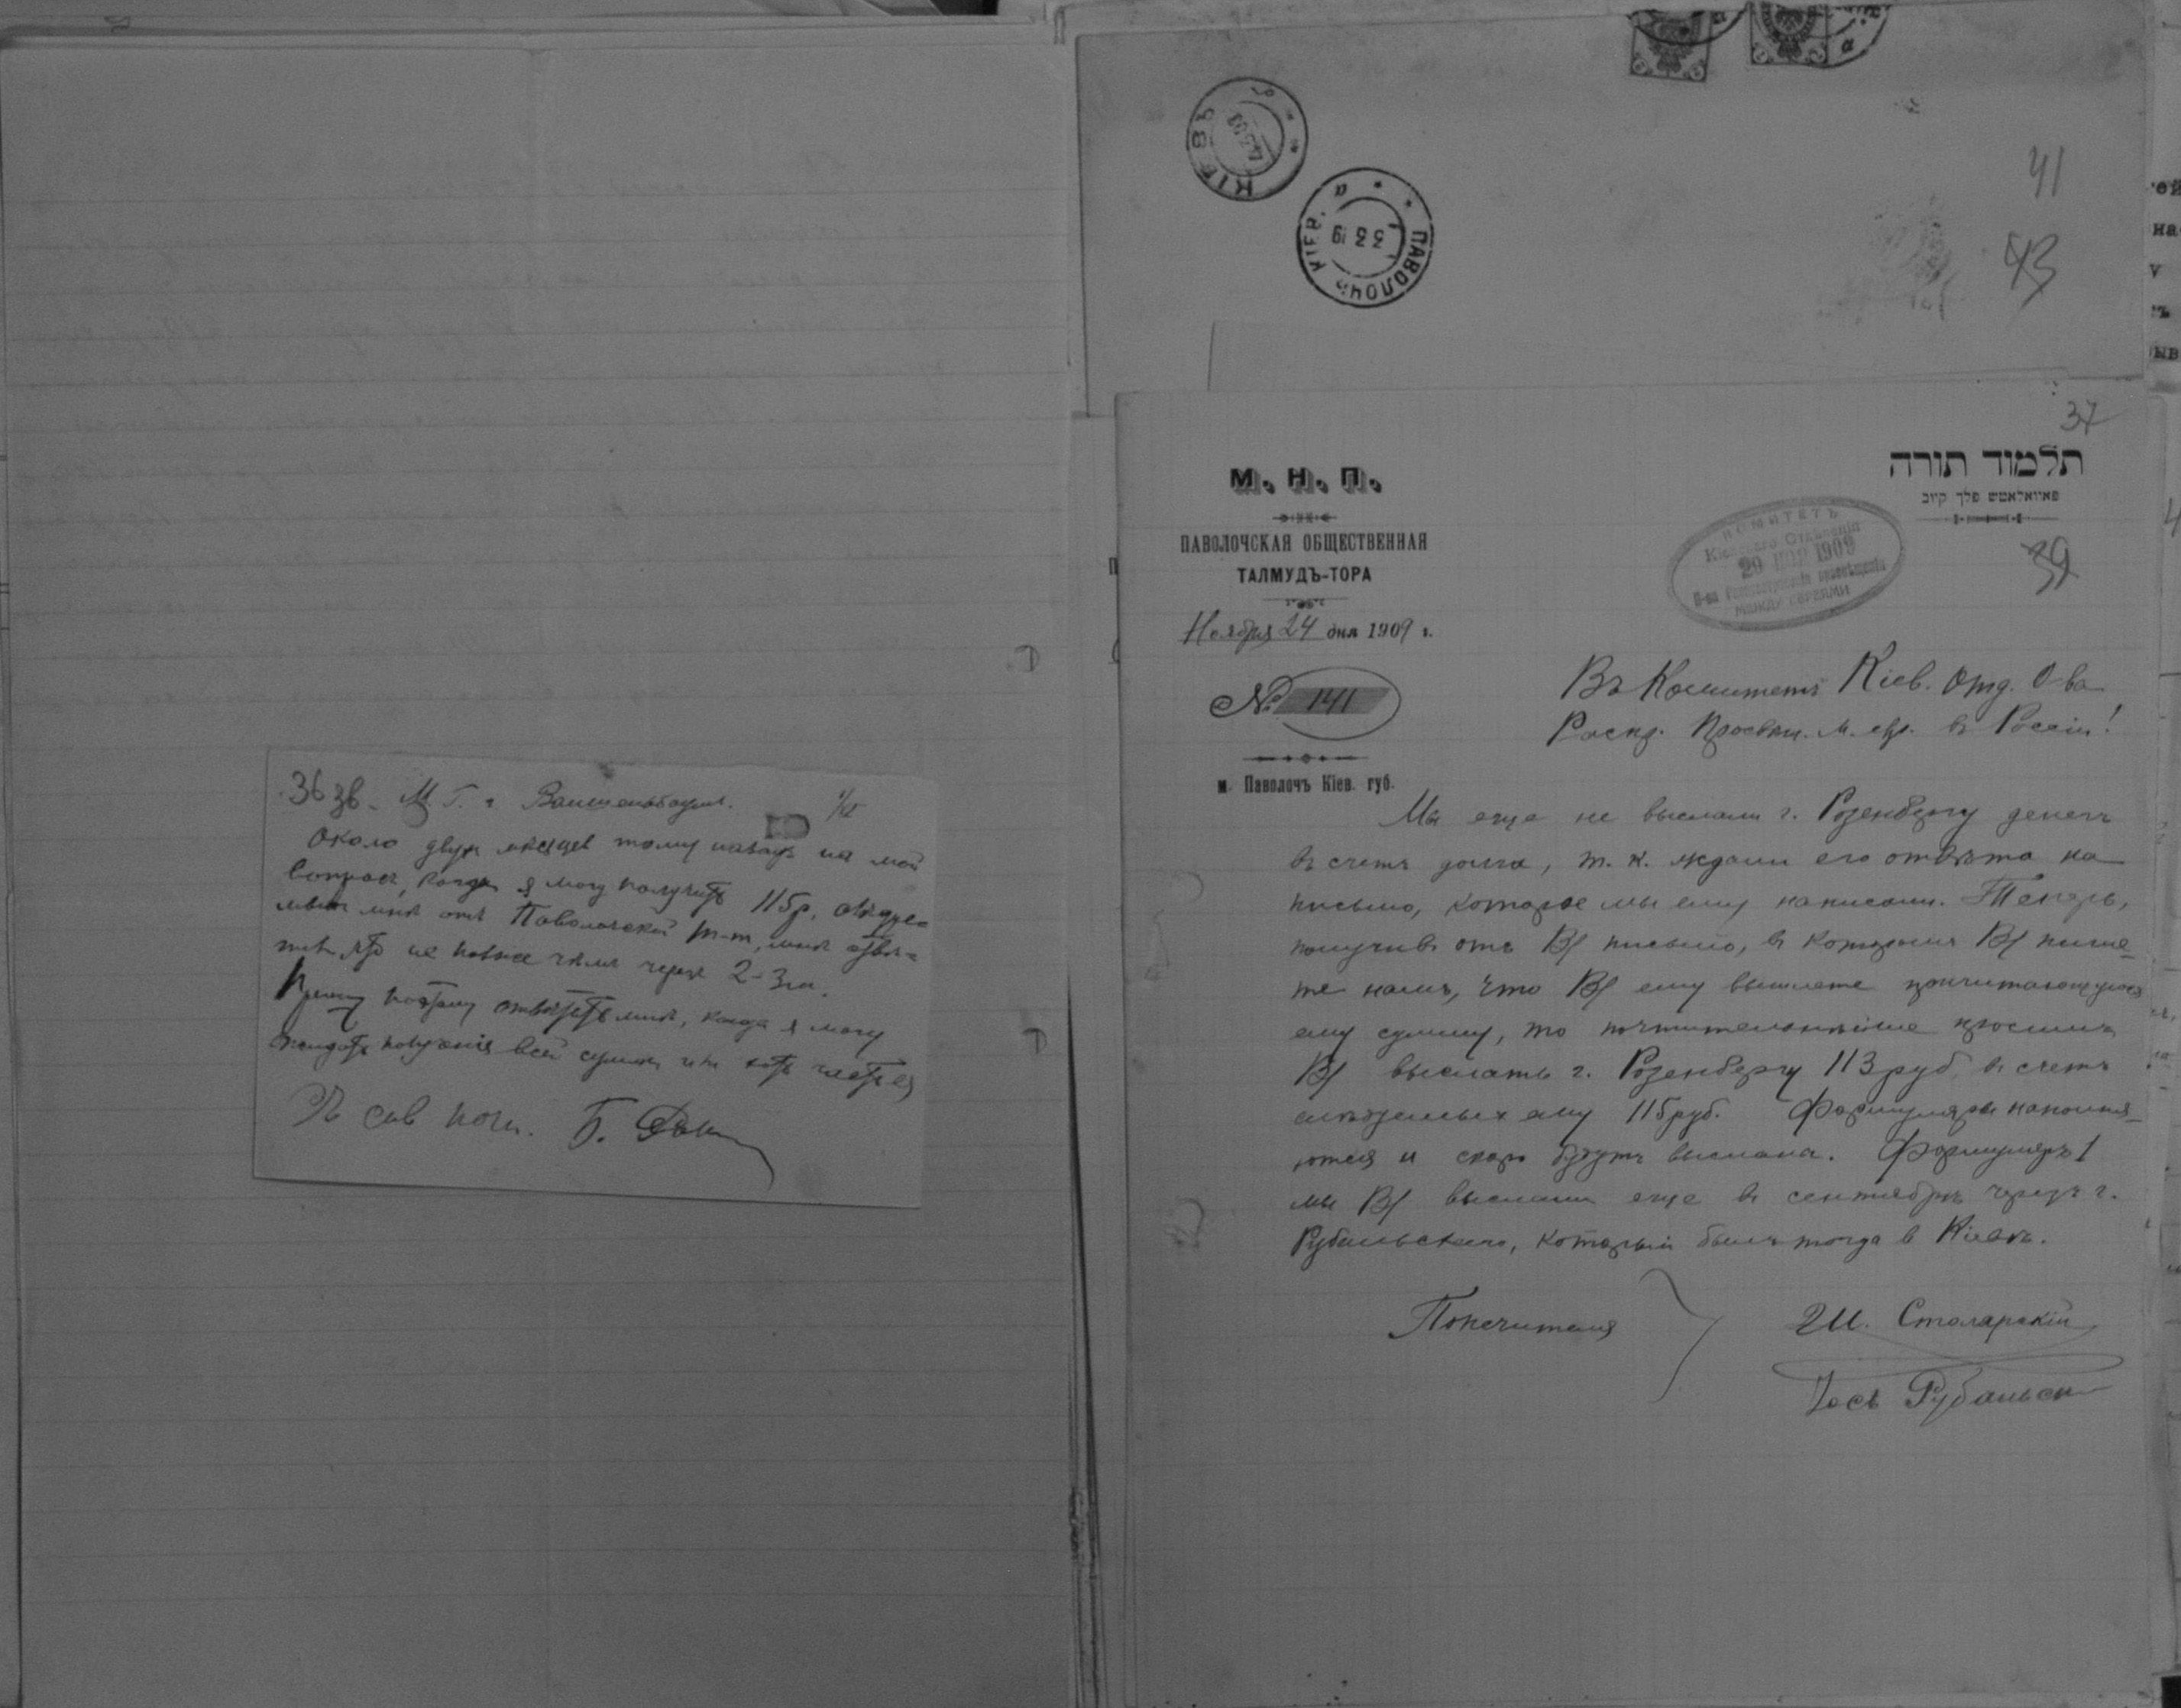 36 зв. М. Г. г. Ваишельбаумъ.
Около двухъ мѣсяцев тому назадъ на мой
вопросъ, когда я могу получить 115 р., слѣдуе=
мые мнѣ отъ Паволочской т-т, мнѣ отвѣ=
тили, что не позже чѣмъ черезъ 2-3 м.
Прошу поэтому отвѣтить мнѣ, когда я могу
ожидать полученія всей суммы или хоть части ея
Съ сов. поч. Б.
КІЕВЪ
ПАВОЛОЧЬ КІЕВ. а
3 3 19
41
43
37
М. Н. П.
ПАВОЛОЧСКАЯ ОБЩЕСТВЕННАЯ
ТАЛМУДЪ-ТОРА
Ноября 24 дня 1909 г.
№ 141
м. Паволочъ Кіев. губ.
תלמוד תורה
פאוואלאטש פלך קיוב
КОМИТЕТЪ
Кіевскаго Отдѣленія
29 НОЯ 1909
О-ва распространенія просвѣщенія
МЕЖДУ ЕВРЕЯМИ
39
Въ Комитетъ Кіев. Отд. О-ва
Распр. Просвѣщ. м. евр. въ Россіи!
Мы еще не выслали г. Розенбергу денегъ
въ счетъ долга, т. к. ждали его отвѣта на
письмо, которое мы ему написали. Теперь,
получивъ отъ В/ письмо, въ которомъ В/ пише-
те намъ, что В/ ему вышлете причитающуюся
ему сумму, то почтительнѣйше просимъ
В/ выслать г. Розенбергу 113 руб. въ счетъ
слѣдуемых ему 115 руб. Формуляры наполня-
ются и скоро будутъ высланы. Формуляръ 1
мы В/ выслали еще въ сентябрѣ черезъ г.
Рубальскаго, который былъ тогда в Кіевѣ.
Попечителя
Ш. Столярскій
Іось Рубальск